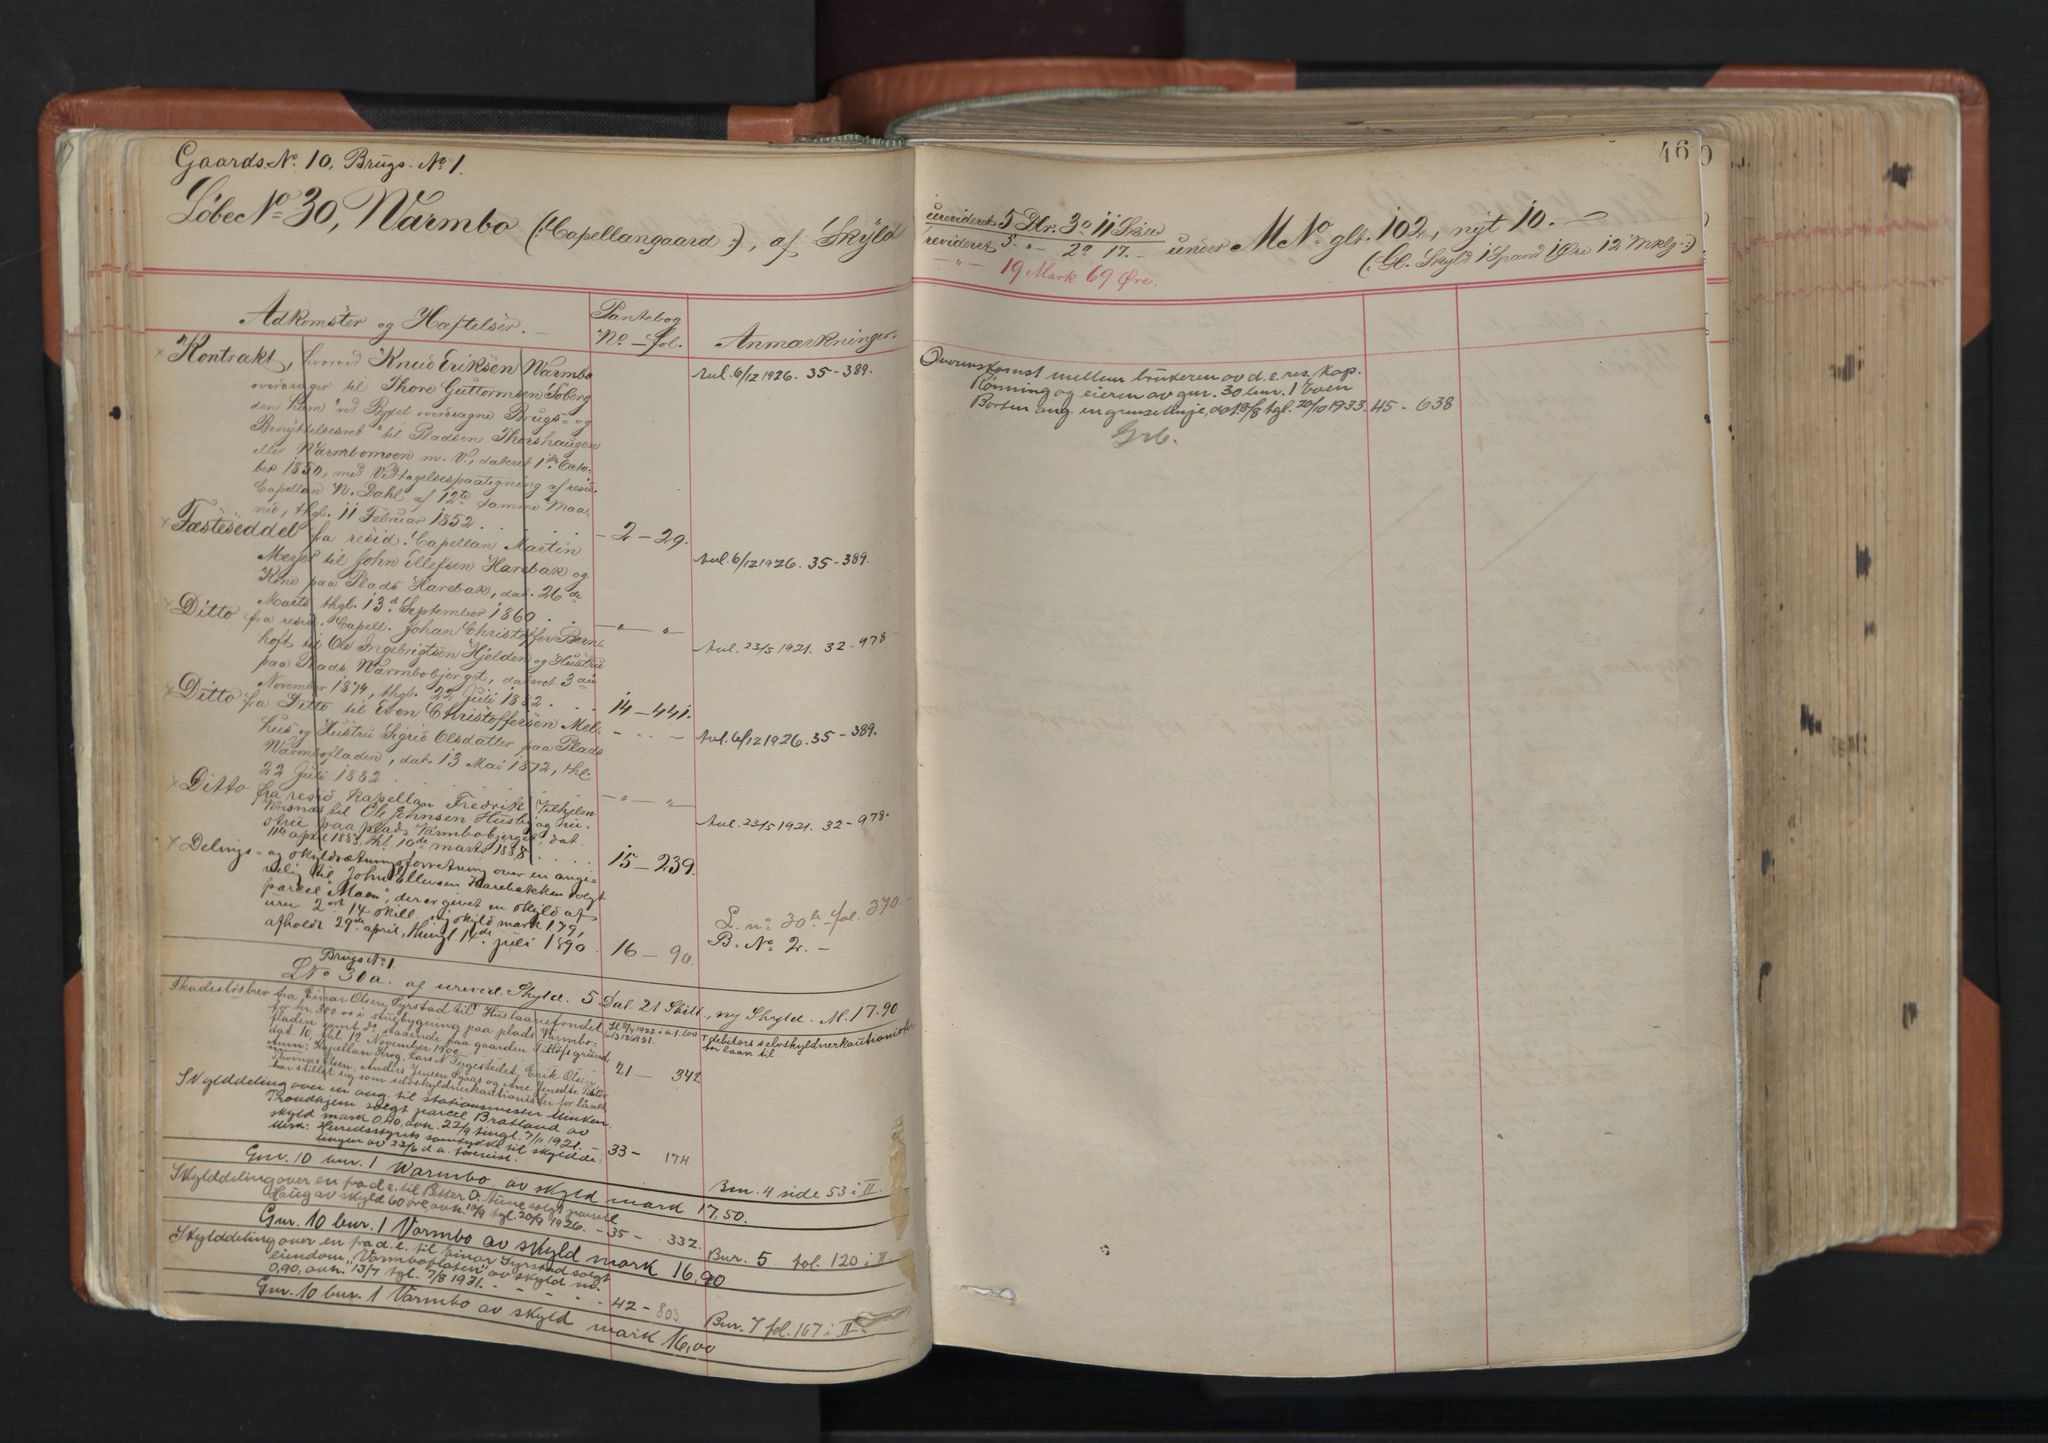 Gaards-No. 10, Brugs-No. 1.
46
Löbe No 30, Warmbo (:Capellangaard:), af Skyld
urevideret 5 Dlr. 3 o 11 Skill
revideret 5 " 2 o 17. -
under M No glt. 102, nyt 10. -
- " - 19 Mark 69 Øre.
(:Gl. Skyld 1 Spand 1 Øre 12 Mklg.:)
Adkomster og Hæftelser. -
Pantebog
No - fol.
Anmærkninger.
Kontrakt, hvorved Knud Eriksen Warmbo
overdrager til Thore Guttormsen Söberg
den ham ved Bydel overdragne Brugs- og
Benyttelsesret til Pladsen Thorshaugen
eller Warmbomoen m. V., dateret 1ste Octo-
ber 1850, med Vedtagelsespaategning af resid.
Capellan N. Dahl af 12te samme Maa-
ned, thgl. 11 Februar 1852. . . - 2 - 29.
Avl. 6/12 1926. 35-389.
Fæsteseddel fra resid. Capellan Martin
Meyer til John Ellefsen Harebak og
Kone paa Plads Harebak, dat. 26de
Marts thgl. 13d September 1860 . . - " - "
Avl. 6/12 1926. 35-389.
Ditto fra resid. Capell. Johan Christoffer Bern-
hoft til Ole Ingebrigtsen Hjelden og Hustru
paa Plads Warmbobjerget, dateret 3die
November 1874, thgl. 22 Juli 1882 . . . 14 - 441.
Avl. 23/5 1921. 32-978
Ditto fra Ditto til Even Christoffersen Mel-
hus og Hustru Sigrid Olsdatter paa Plads
Warmbofladen, dat. 13 Mai 1872, thl.
22 Juli 1882 . . . - " - "
Avl. 6/12 1926. 35-389.
Ditto fra resid kapellan Fredrik Vilhelm
til Ole Johnsen Husby og hu-
stru paa plads Varmbobjerget, dat.
11te april 1883, thl. 10de marts 1888 . . . 15 - 239.
Avl. 23/5 1921. 32-978.
Delings- og skyldsætningsforretning over en angi-
velig til John Ellevsen Harebakken solgt
parcel "Moen", der er givet en skyld af
urev. 2 ort 14 skill. ny skyld mark 1,79,
afholdt 29de april, thingl 14de juli 1890. 16 - 90.
L. no 30b fol. 370. -
B. No 2. -
Brugs No 1.
L No 30 a. af urevid. Skyld. 5 Dal. 21 Skill, ny Skyld. M. 17.90
Skadesløsbrev fra Einar Olsen Syrstad til Huslaanefondet
for kr. 300 00 i stuebygning paa plads Varmbo-
fladen samt do. staaende paa gaarden grund,
dat 10, tgl 12 November 1900.
Anm: Kapellan Krog, Lars N. Engestedet, Erik Olsen
Thomas Olsen, Anders Jensen og Ane Jensdtr.
har stillet sig som selvskyldnerkautionister for lånet
21 - 342
debitors selvskyldnerkautionister
for laan til
Skylddeling over en ang. til stationsmester Minken,
Trondhjem solgt parcel Bratland av
skyld mark 0,40, avh. 22/9 tingl. 7/11 1921. -
Mrk: Herredsstyrets samtykke til skyldde-
lingen av 23/6 d.a. foreviist. 33 - 174
Bm. 4 side 53 i II.
Gnr. 10 bnr. 1 Warmbo, av skyld mark 17,50.
Skylddeling over en fra d. e. til Petter O. Tune solgt parcel
Haug av skyld 60 øre, avh. 10/9 tgl. 20/9 1926. - 35 - 332.
Bnr. 5 fol. 120 i II
Gnr. 10 bnr. 1 Varmbo av skyld mark 16,90
Skylddeling over en fra d. e. til Einar Syrstad solgt
eiendom, "Varmboflaten" av skyld m.
0,90, avh. 13/7 tgl. 7/8 1931. - - - - 42 - 803
Bnr. 7 fol. 167 i II.
Gnr. 10 bnr. 1 Varmbo av skyld mark 16,00
Overenskomst mellem brukeren av d. e. res. kap.
Rönning og eieren av gnr. 30 bnr. 1 Even
Borten ang. en grenselinje, dat. 18/8 tgl. 20/10 1933. 45 - 638